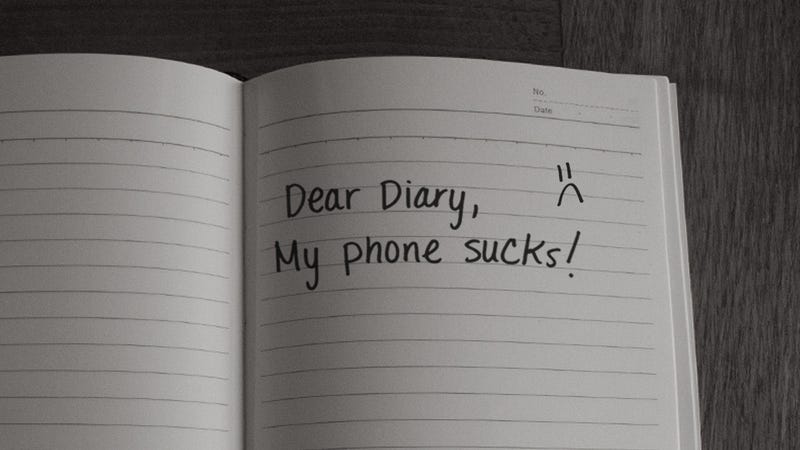 No.
Date
Dear Diary,
My phone sucks!